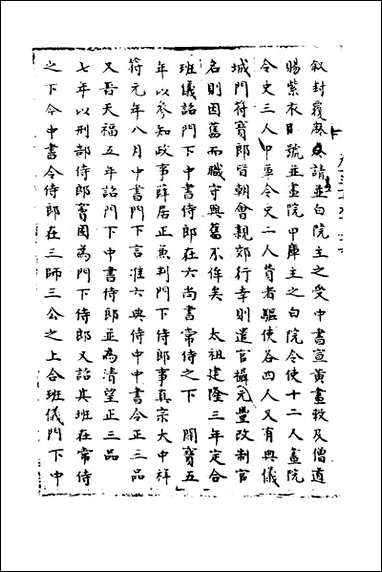 叙封覆麻㕘請並白院主之受中書宣黄畫敕及僧道
賜紫衣師號並畫院甲庫主之白院令使十二人畫院
令史三人甲庫令史二人賛者驅使各四人又有典儀
城門符寳郎皆朝會親郊行幸則遣官攝元豐改制官
名則因舊而職守與舊不侔矣　太祖建隆三年定合
班儀詔門下中書侍郎在六尚書常侍之下　開寳五
年以參知政事薛居正兼判門下侍郎事真宗大中祥
符元年八月中書門下言准六典侍中中書令正三品
又晉天福五年詔門下中書侍郎並為清望正三品
七年以刑部侍郎竇因為門下侍郎又詔其班在常侍
之下今中書令侍郎在三師三公之上合班儀門下中